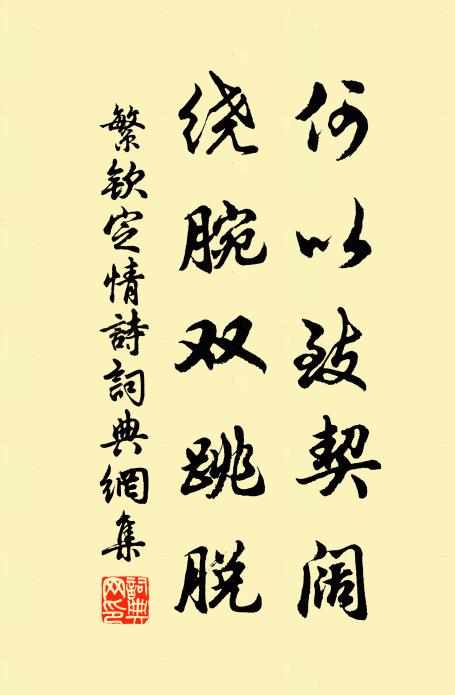 何以致契阔
绕腕双跳脱
繁钦定情詩詞典網集
詞典网印